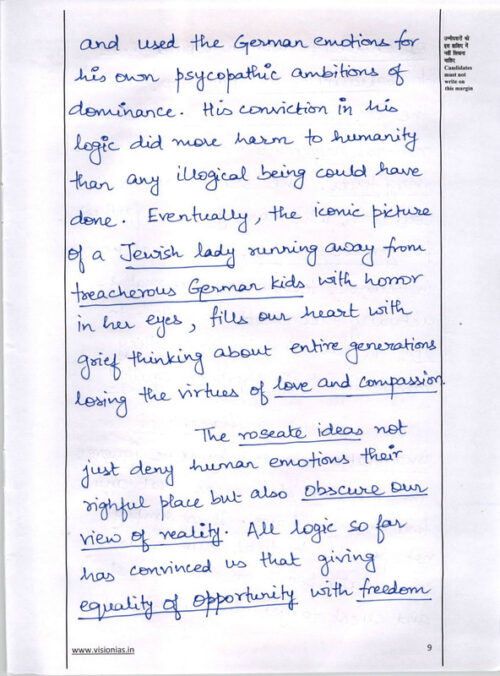 and used the German emotions for
his own psycopathic ambitions of
dominance. His conviction in his
logic did more harm to humanity
than any illogical being could have
done. Eventually, the iconic picture
of a Jewish lady running away from
treacherous German kids with horror
in her eyes, fills our heart with
grief thinking about entire generations
losing the virtues of love and compassion.
The roseate ideas not
just deny human emotions their
righful place but also obscure our
view of reality. All logic so far
has convinced us that giving
equality of opportunity with freedom
उम्मीदवारों को
इस हाशिए में
नहीं लिखना
चाहिए
Candidates
must not
write on
this margin
www.visionias.in
9